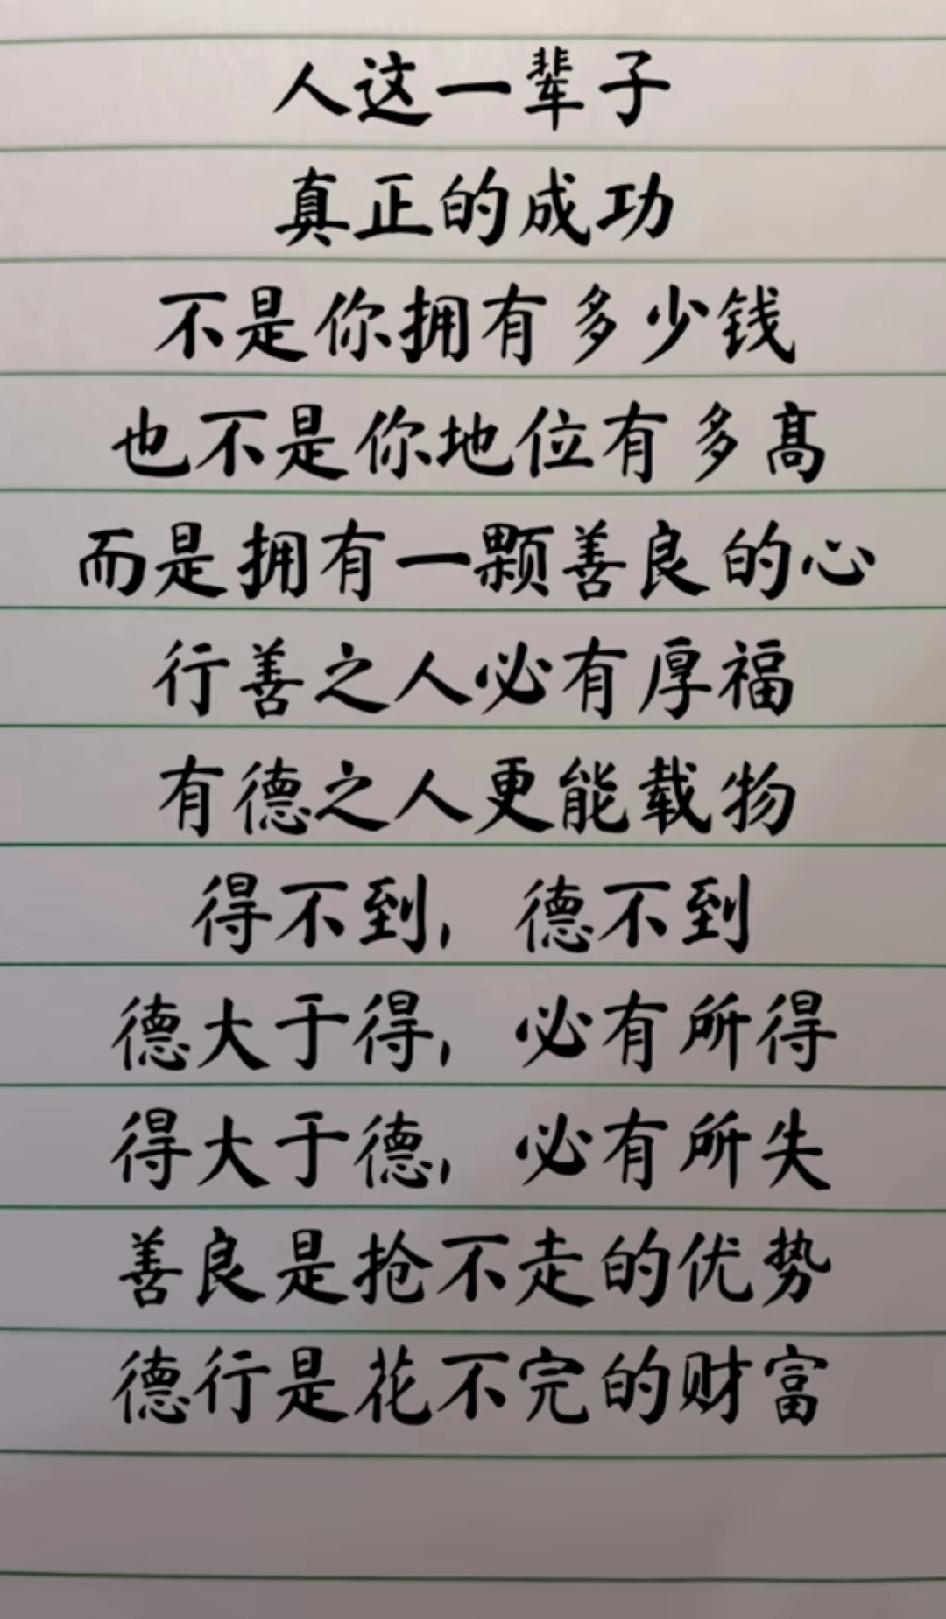 人这一辈子
真正的成功
不是你拥有多少钱
也不是你地位有多高
而是拥有一颗善良的心
行善之人必有厚福
有德之人更能载物
得不到，德不到
德大于得，必有所得
得大于德，必有所失
善良是抢不走的优势
德行是花不完的财富